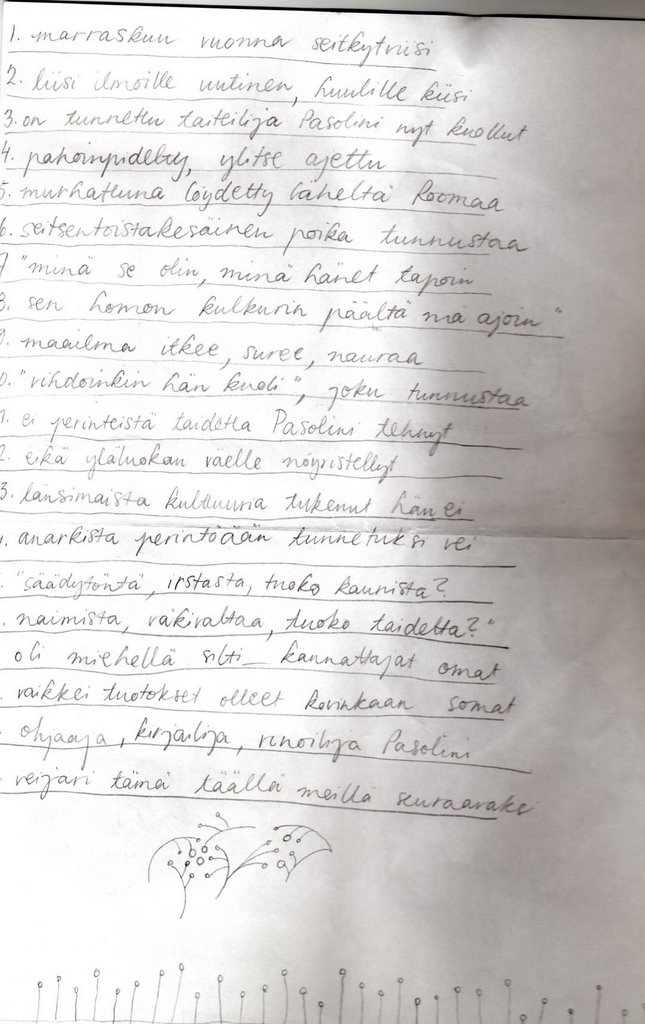 1. marraskuu vuonna seitkytviisi
2. liisi ilmoille uutinen, huulille kiisi
3. on tunnettu taiteilija Pasolini nyt kuollut
4. pahoinpidelty, ylitse ajettu
5. murhattuna löydetty läheltä Roomaa
6. seitsentoistakesäinen poika tunnustaa
7 "minä se olin, minä hänet tapoin
8. sen homon kulkurin päältä mä ajoin"
9. maailma itkee, suree, nauraa
0. "vihdoinkin hän kuoli", joku tunnustaa
1. ei perinteistä taidetta Pasolini tehnyt
2. eikä yläluokan väelle nöyristellyt
3. länsimaista kulttuuria tukenut hän ei
. anarkista perintöään tunnetuksi vei
. "säädytöntä, irstasta, tuoko kaunista?
. naimista, väkivaltaa, tuoko taidetta?"
oli miehellä silti kannattajat omat
. vaikkei tuotokset olleet kovinkaan somat
. ohjaaja, kirjailija, runoilija Pasolini
. veijari tämä täällä meillä seuraavaks